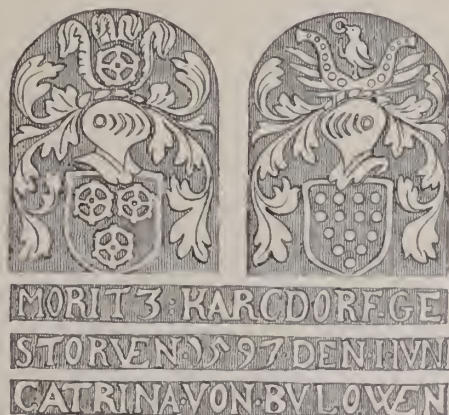 MORITZ : KARCDORF·GE
STORVEN·1597·DEN·I·IVN
CATRINA·VON·BVLOWEN